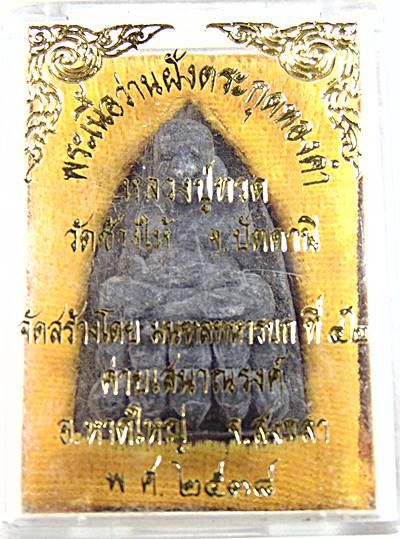 พระเนื้อว่านฝังตระกุดทองคำ
หลวงปู่ทวด
วัดช้างให้ จ.ปัตตานี
จัดสร้างโดย มณฑลทหารบก ที่ ๔๒
ค่ายเสนาณรงค์
อ.หาดใหญ่ จ.สงขลา
พ.ศ.๒๕๓๘